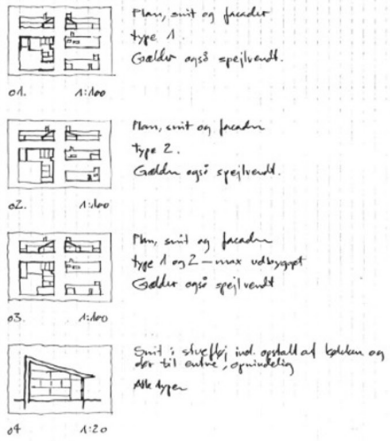 Plan, snit og facader
type 1.
Gælder også spejlvendt.
01. 1:100
Plan, snit og facader
type 2.
Gælder også spejlvendt.
02. 1:100
Plan, snit og facader
type 1 og 2 – max udbygget
Gælder også spejlvendt
03. 1:100
Snit i stuefløj ind. opstalt af køkken og
dør til entré, oprindelig
Alle typer
04 1:20